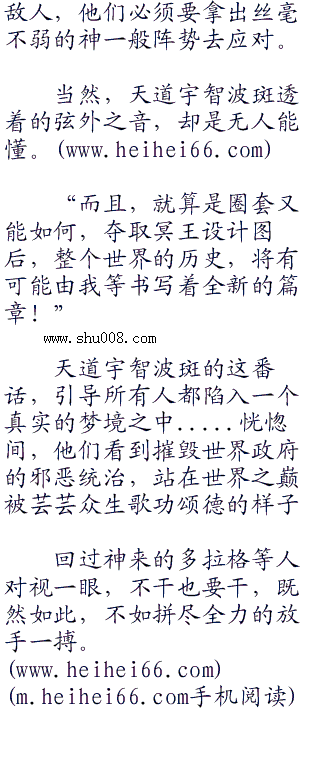 敌人，他们必须要拿出丝毫
不弱的神一般阵势去应对。
当然，天道宇智波斑透
着的弦外之音，却是无人能
懂。(www.heihei66.com)
“而且，就算是圈套又
能如何，夺取冥王设计图
后，整个世界的历史，将有
可能由我等书写着全新的篇
章！”
www.shu008.com
天道宇智波斑的这番
话，引导所有人都陷入一个
真实的梦境之中.....恍惚
间，他们看到摧毁世界政府
的邪恶统治，站在世界之巅
被芸芸众生歌功颂德的样子
回过神来的多拉格等人
对视一眼，不干也要干，既
然如此，不如拼尽全力的放
手一搏。
(www.heihei66.com)
(m.heihei66.com手机阅读)